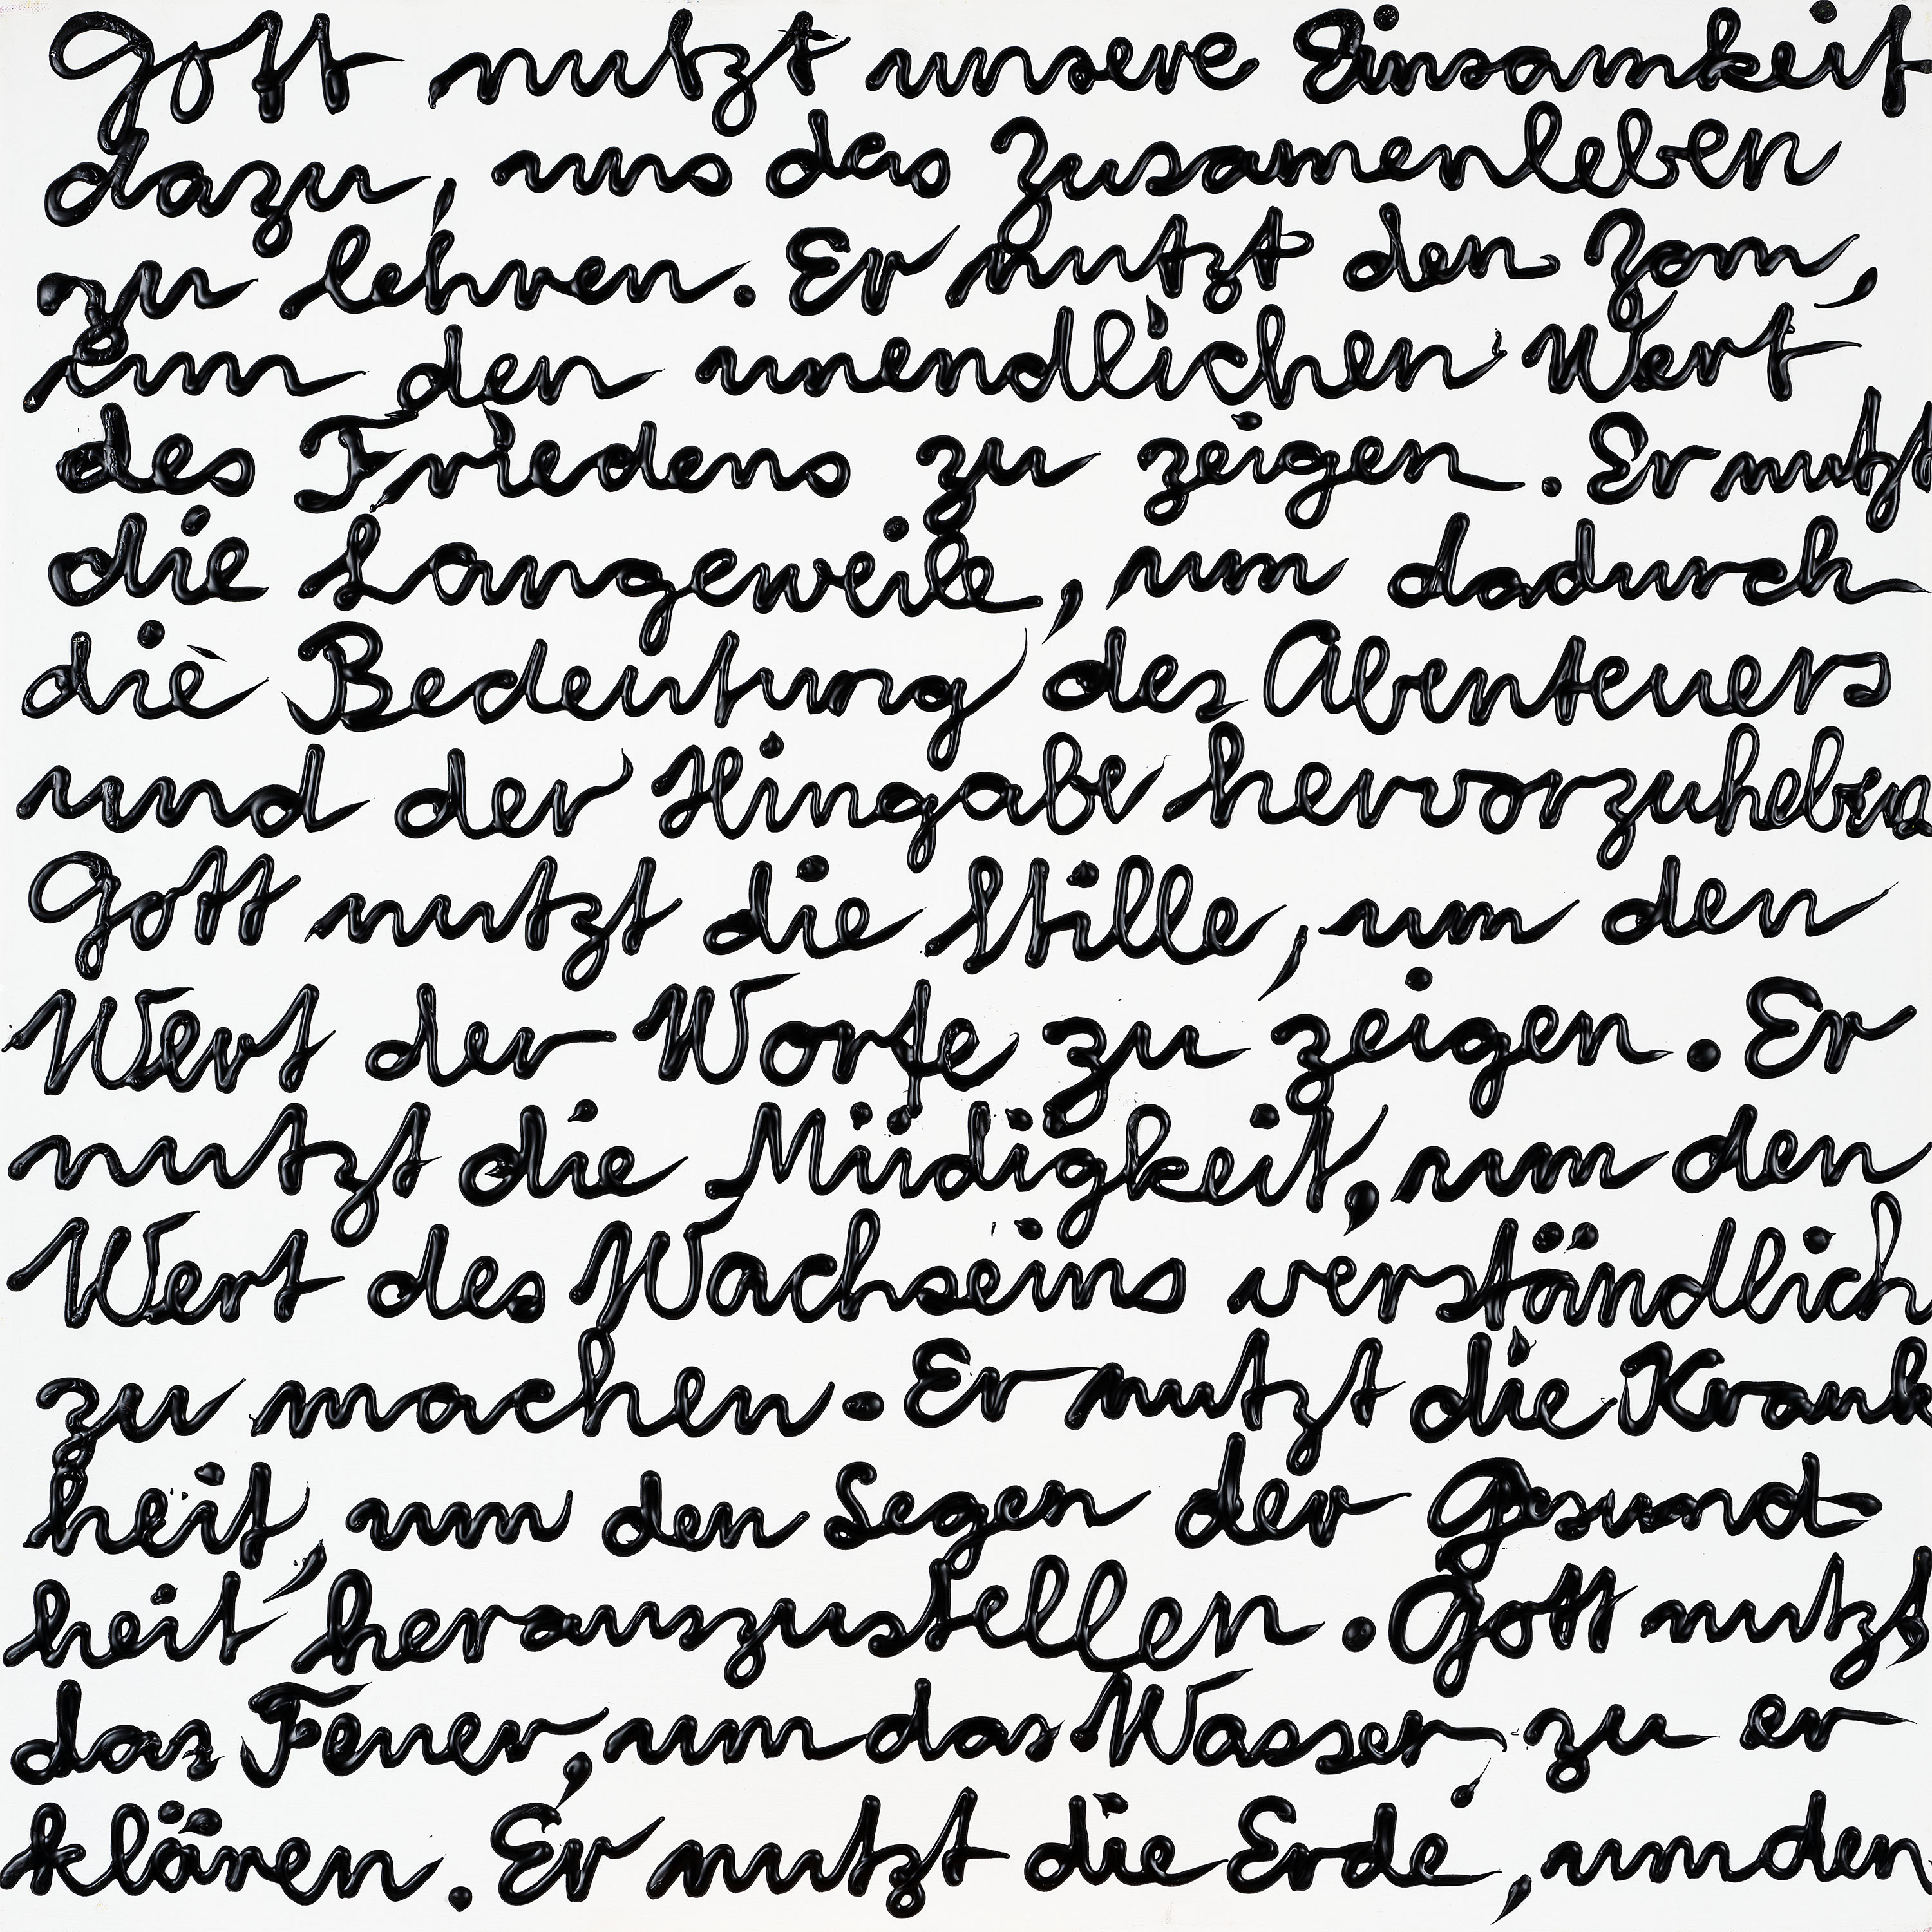 Gott nutzt unsere Einsamkeit
dazu, uns das Zusamenleben
zu lehren. Er nutzt den Zorn,
um den unendlichen Wert
des Friedens zu zeigen. Er nutzt
die Langeweile, um dadurch
die Bedeutung des Abenteuers
und der Hingabe hervorzuheben
Gott nutzt die Stille, um den
Wert der Worte zu zeigen. Er
nutzt die Müdigkeit, um den
Wert des Wachseins verständlich
zu machen. Er nutzt die Krank
heit, um den Segen der Gesund
heit herauszustellen. Gott nutzt
das Feuer, um das Wasser zu er
klären. Er nutzt die Erde, um den